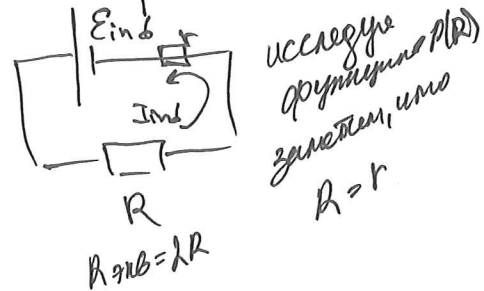 Eind
r
Iind
R
Rэкв = 2R
исследуя
функцию P(R)
заметим, что
R = r